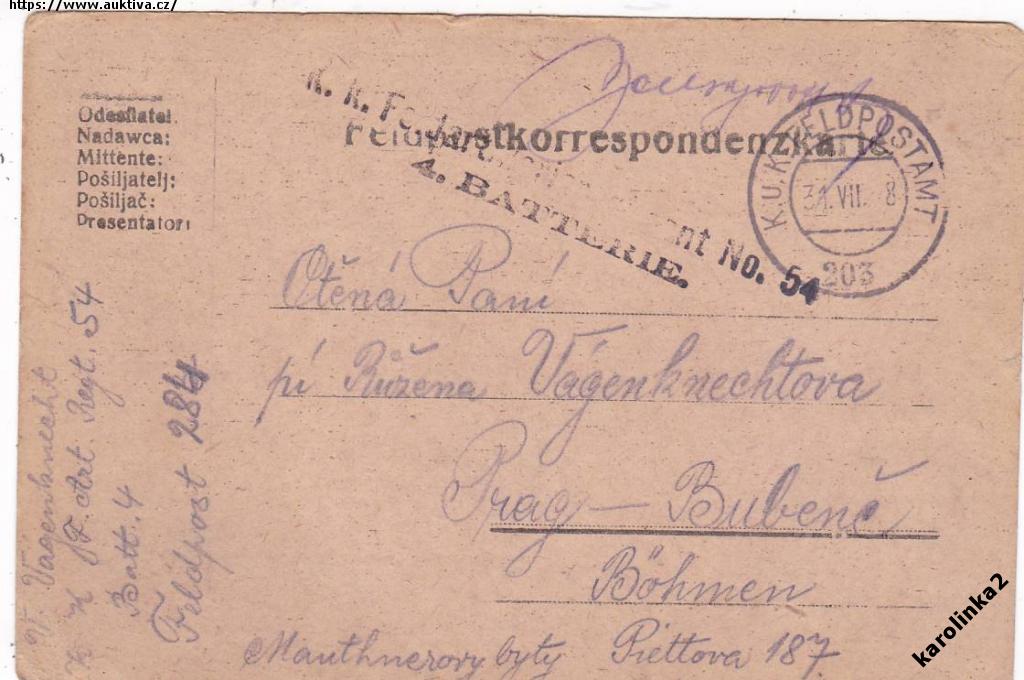 https://www.auktiva.cz/
Odesílatel:
Nadawca:
Mittente:
Pošiljatelj:
Pošiljač:
Presentator:
Feldpostkorrespondenzkarte
K. k. No. 54
4. BATTERIE.
K. U. K. FELDPOSTAMT
31. VII. 8
203
Otěná Paní
pí Růžena Vágenknechtova
Prag — Bubenč
Böhmen
Mauthnerovy byty Piettova 187
Vágenknecht
F. Art. Regt. 54
Batt. 4
Feldpost 284
karolinka2